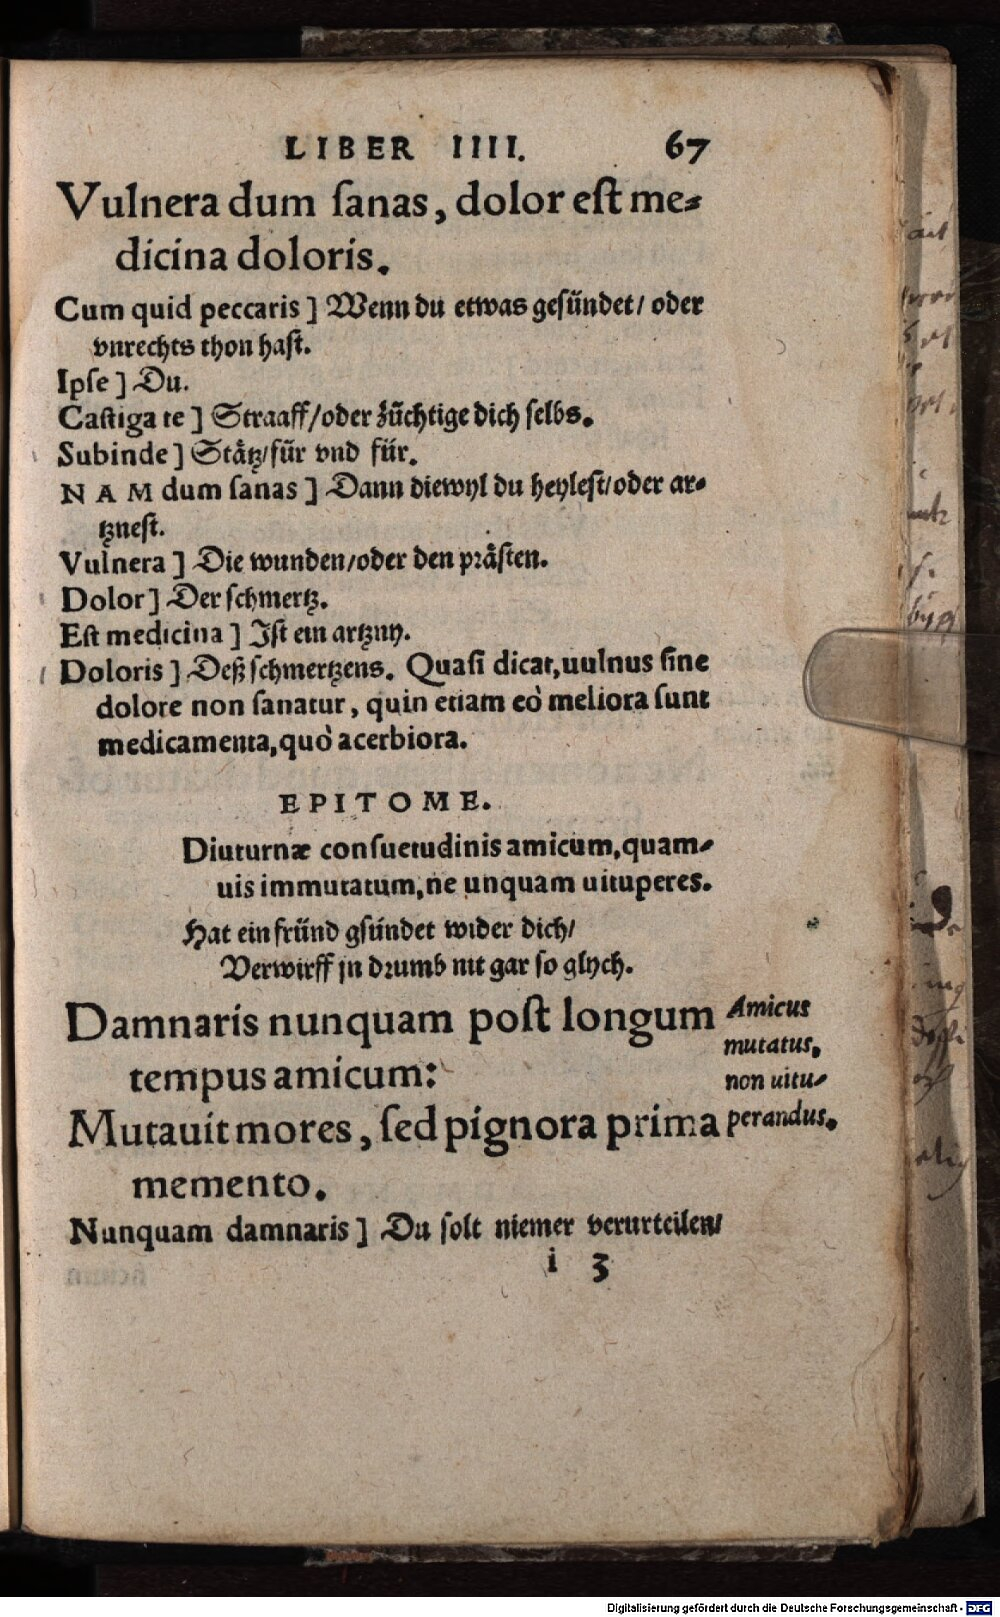 LIBER IIII. 67
Vulnera dum ſanas, dolor eſt me⸗
dicina doloris.
Cum quid peccaris] Wenn du etwas geſündet/ oder
vnrechts thon haſt.
Ipſe] Du.
Caſtiga te] Straaff/oder züchtige dich ſelbs.
Subinde] Stätz/für vnd für.
NAM dum ſanas] Dann diewyl du heyleſt/oder ar⸗
tzneſt.
Vulnera] Die wunden/oder den präſten.
Dolor] Der ſchmertz.
Eſt medicina] Iſt ein artzny.
Doloris] Deß ſchmertzens. Quaſi dicat, uulnus ſine
dolore non ſanatur, quin etiam eò meliora ſunt
medicamenta, quò acerbiora.
EPITOME.
Diuturnæ conſuetudinis amicum, quam⸗
uis immutatum, ne unquam uituperes.
Hat ein fründ gſündet wider dich/
Verwirff jn drumb nit gar ſo glych.
Damnaris nunquam poſt longum
tempus amicum:
Mutauit mores, ſed pignora prima
memento.
Amicus
mutatus,
non uitu⸗
perandus.
Nunquam damnaris] Du ſolt niemer verurteilen/
i 3
Digitalisierung gefördert durch die Deutsche Forschungsgemeinschaft - DFG